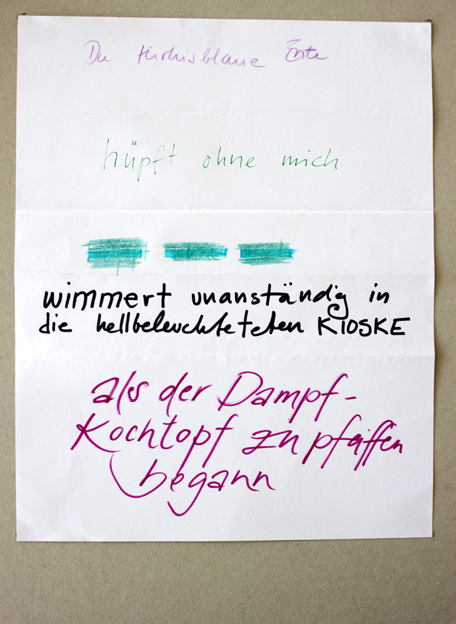 Die türkisblaue Ente
hüpft ohne mich
wimmert unanständig in
die hellbeleuchteteten KIOSKE
als der Dampf-
Kochtopf zu pfeiffen
begann